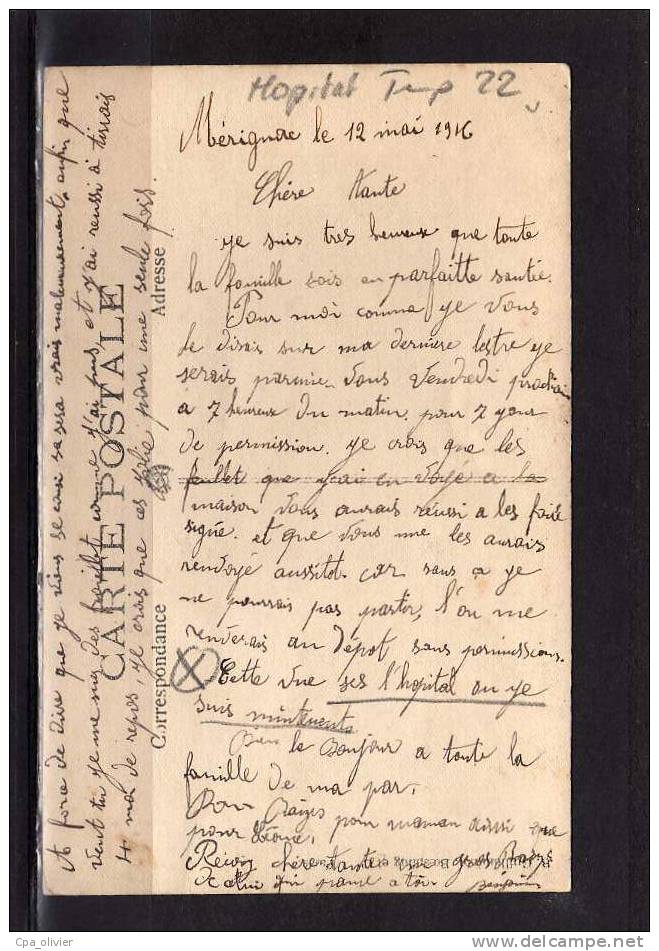 Hopital Temp 22
Mérignac le 12 mai 1916
Chère Tante
je suis tres heureux que toute
la famille sois en parfaitte santée.
Pour moi comme je vous
le disais sur ma derniere lestre je
serais parmie vous Vendredi prochain
a 7 heureux du matin. pour 7 jour
de permission. je crois que les
feuillet que j'ai en voyé a la
maison vous aurais réussi a les faire
signé. et que vous me les aurais
renvoyé aussitot. car sans ça je
ne pourrais pas partir, l'on me
renverais au Dépot sans permissions.
Cette vue ses l'hopital ou je
suis mintenents
le Bonjour a toute la
famille de ma par.
Bon Baizes pour maman aussi que
pour
Reçois chère tante une gros Baizé
de celui qui panse a toi. Benjamin
A force de dire que je viens se cousi sa sera vrais malheureusement, enfin que
veut tu je me suis des comme j'ai pus, et j'ai reussi à tirrais
4 moi de repos, je crois que ces jolie pour une seule fois.
CARTE POSTALE
Correspondance
Adresse
Cpa_olivier
www.delcampe.net